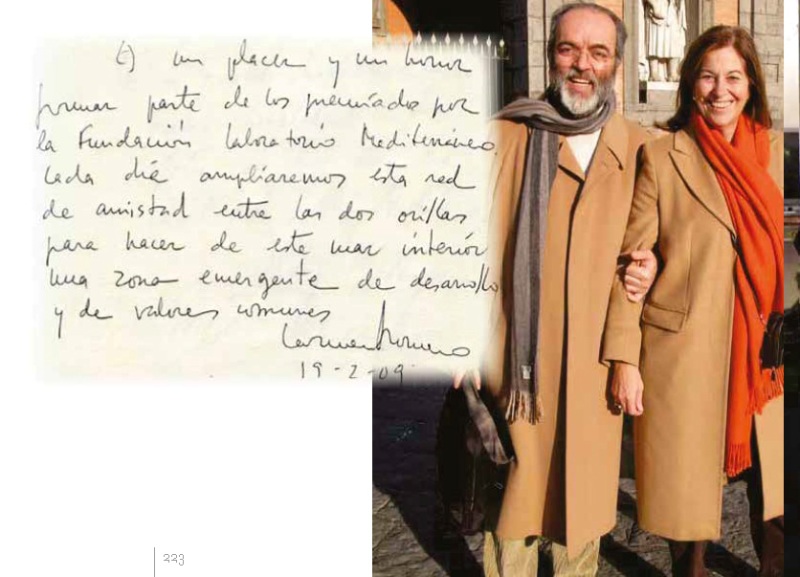 Es un placer y un honor
formar parte de los premiados por
la Fundación Laboratorio Mediterráneo.
Cada día ampliaremos esta red
de amistad entre las dos orillas
para hacer de este mar interior
una zona emergente de desarrollo
y de valores comunes
Carmen Romero
19-2-09
223